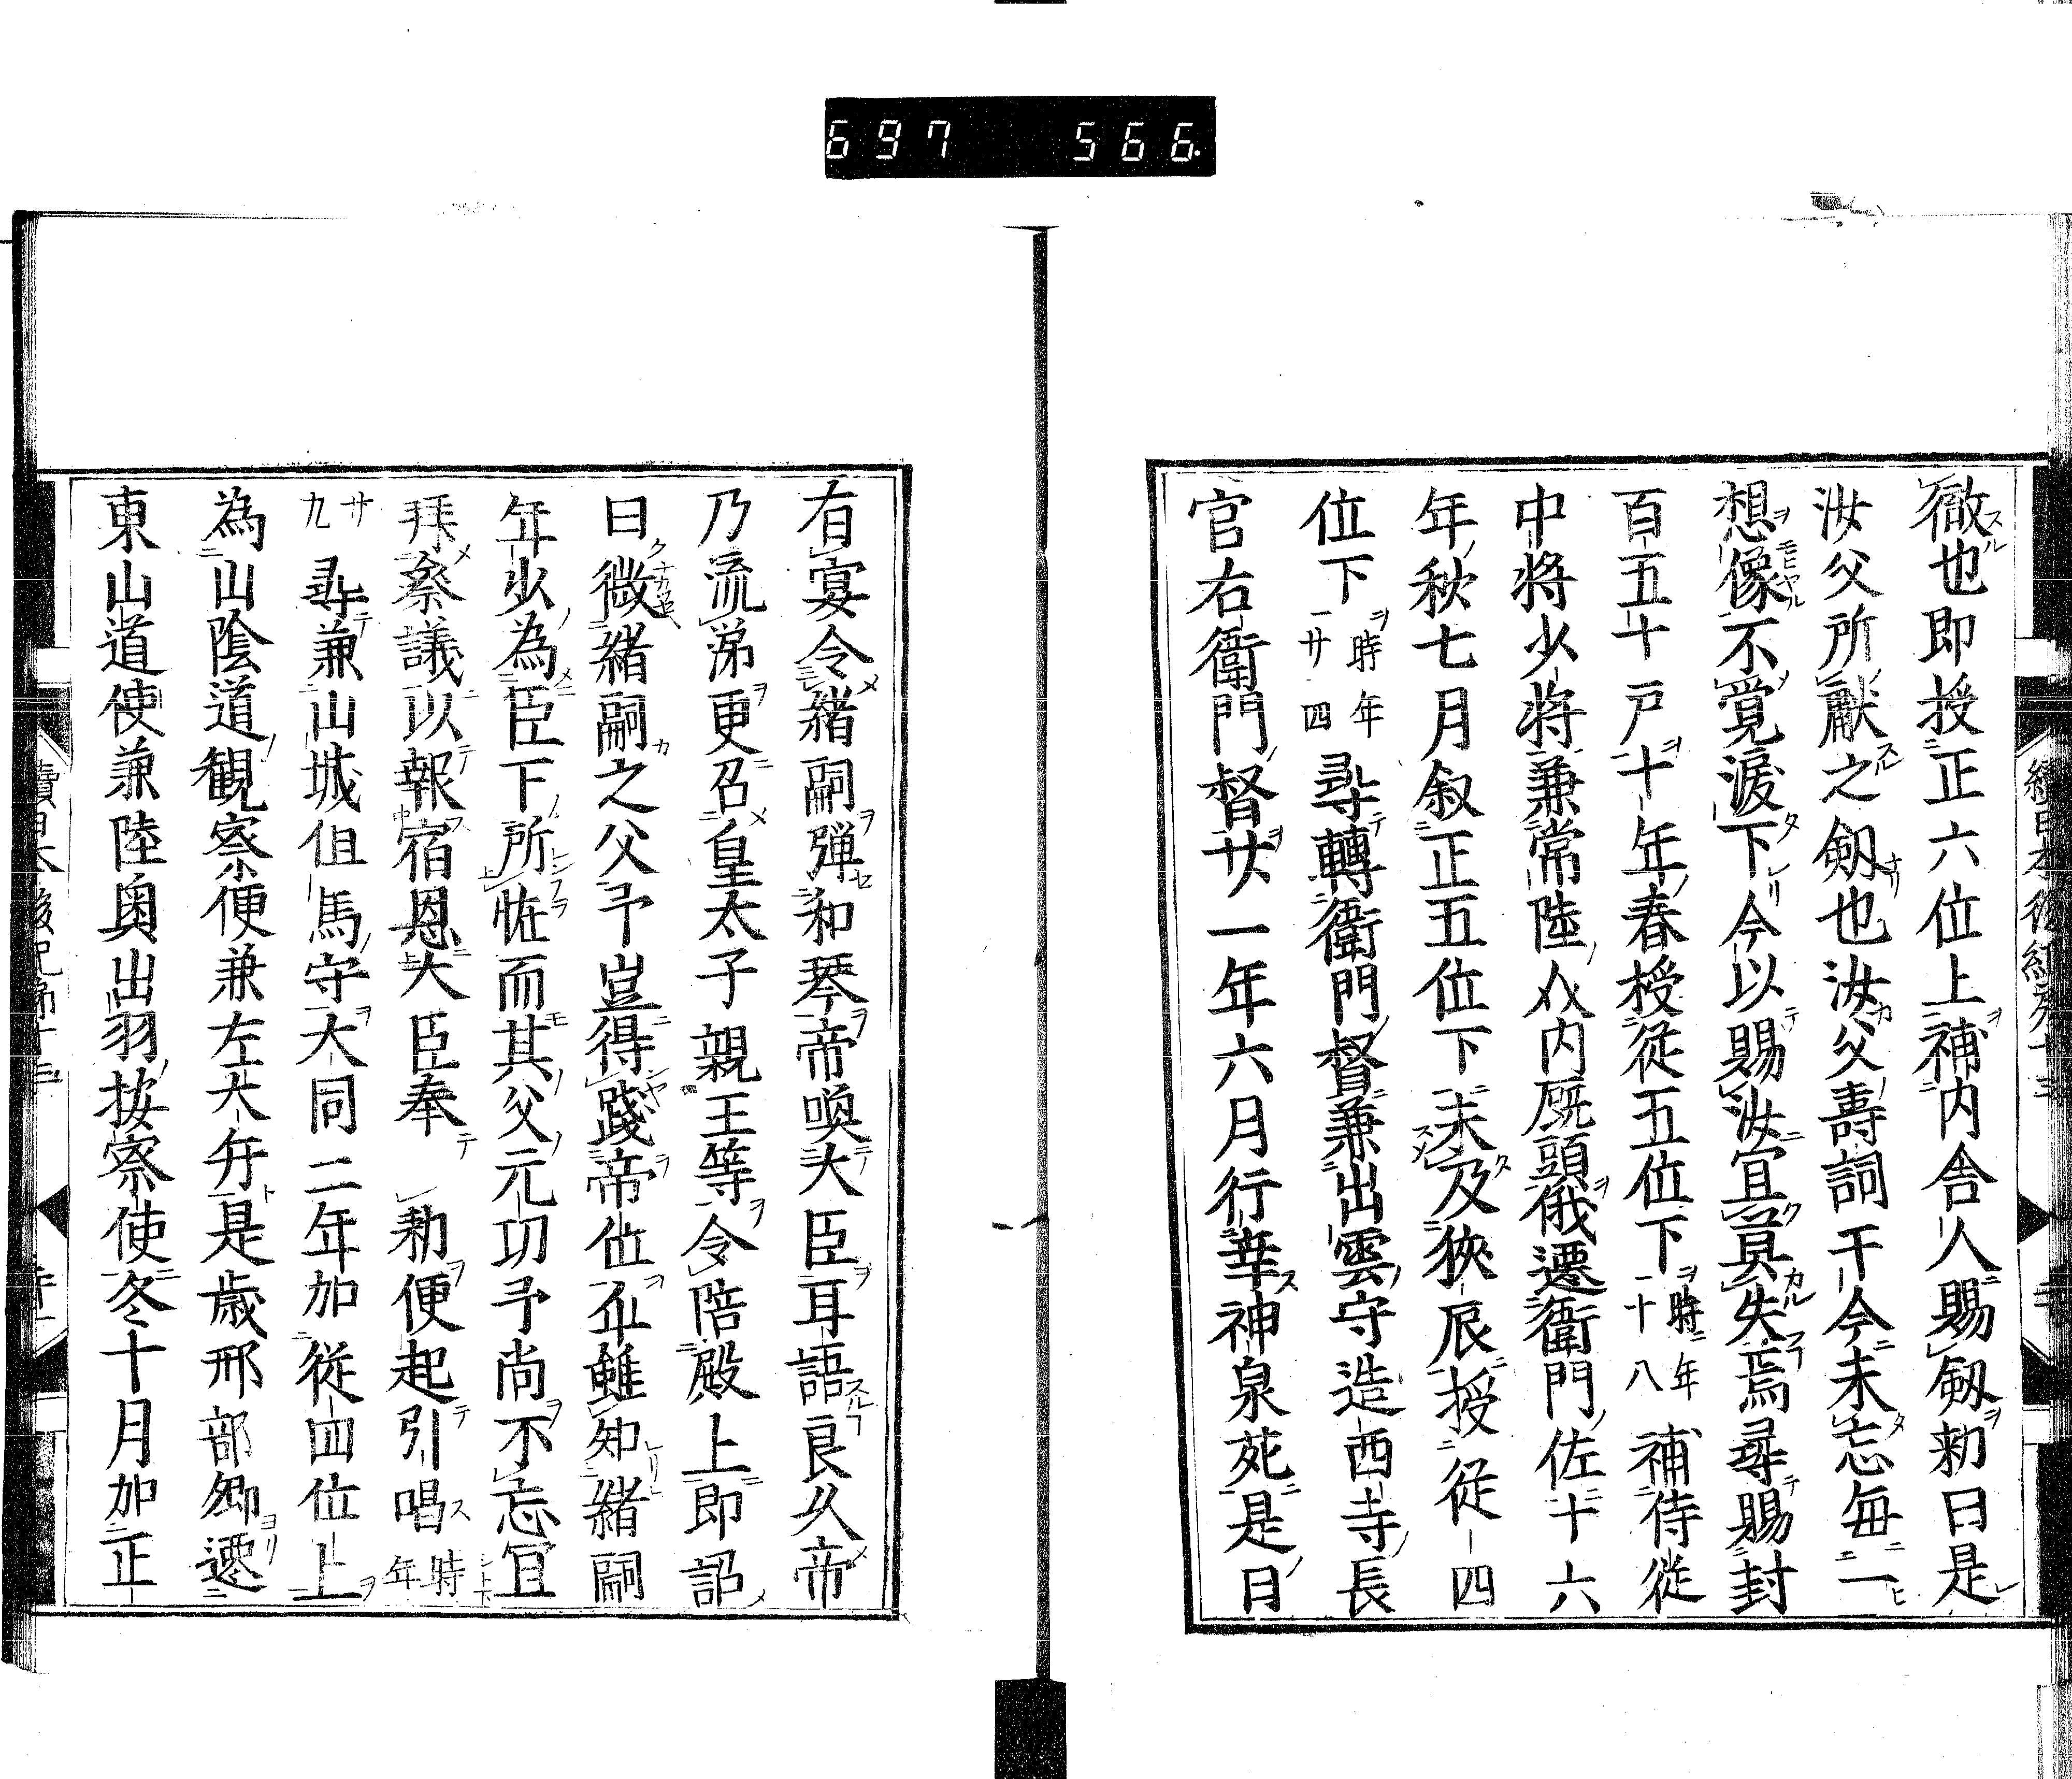 697 566
徹也即授正六位上補内舎人賜剱勅曰是
汝父所獻之剱也汝父壽詞于今未忘毎一
想像不覚淚下今以賜汝宜莫失焉尋賜封
百五十戸十年春授従五位下時年一十八補侍従
中将少将兼常陸内厩頭俄遷衛門佐十六
年秋七月叙正五位下未及狹辰授従四
位下時年一廿四尋轉衛門督兼出雲守造西寺長
官右衛門督廿一年六月行幸神泉苑是日
有宴令緒嗣弾和琴帝喚大臣耳語良久帝
乃流涕更召皇太子親王等令陪殿上即詔
曰微緒嗣之父予豈得踐帝位乎雖知緒嗣
年少為臣下所恠而其父元功予尚不忘宜
拜叅議以報宿恩大臣奉勅便起引唱時年
廿九尋兼山城但馬守大同二年加従四位上
為山陰道観察使兼左大弁是歳刑部卿遷
東山道使兼陸奥出羽按察使冬十月加正